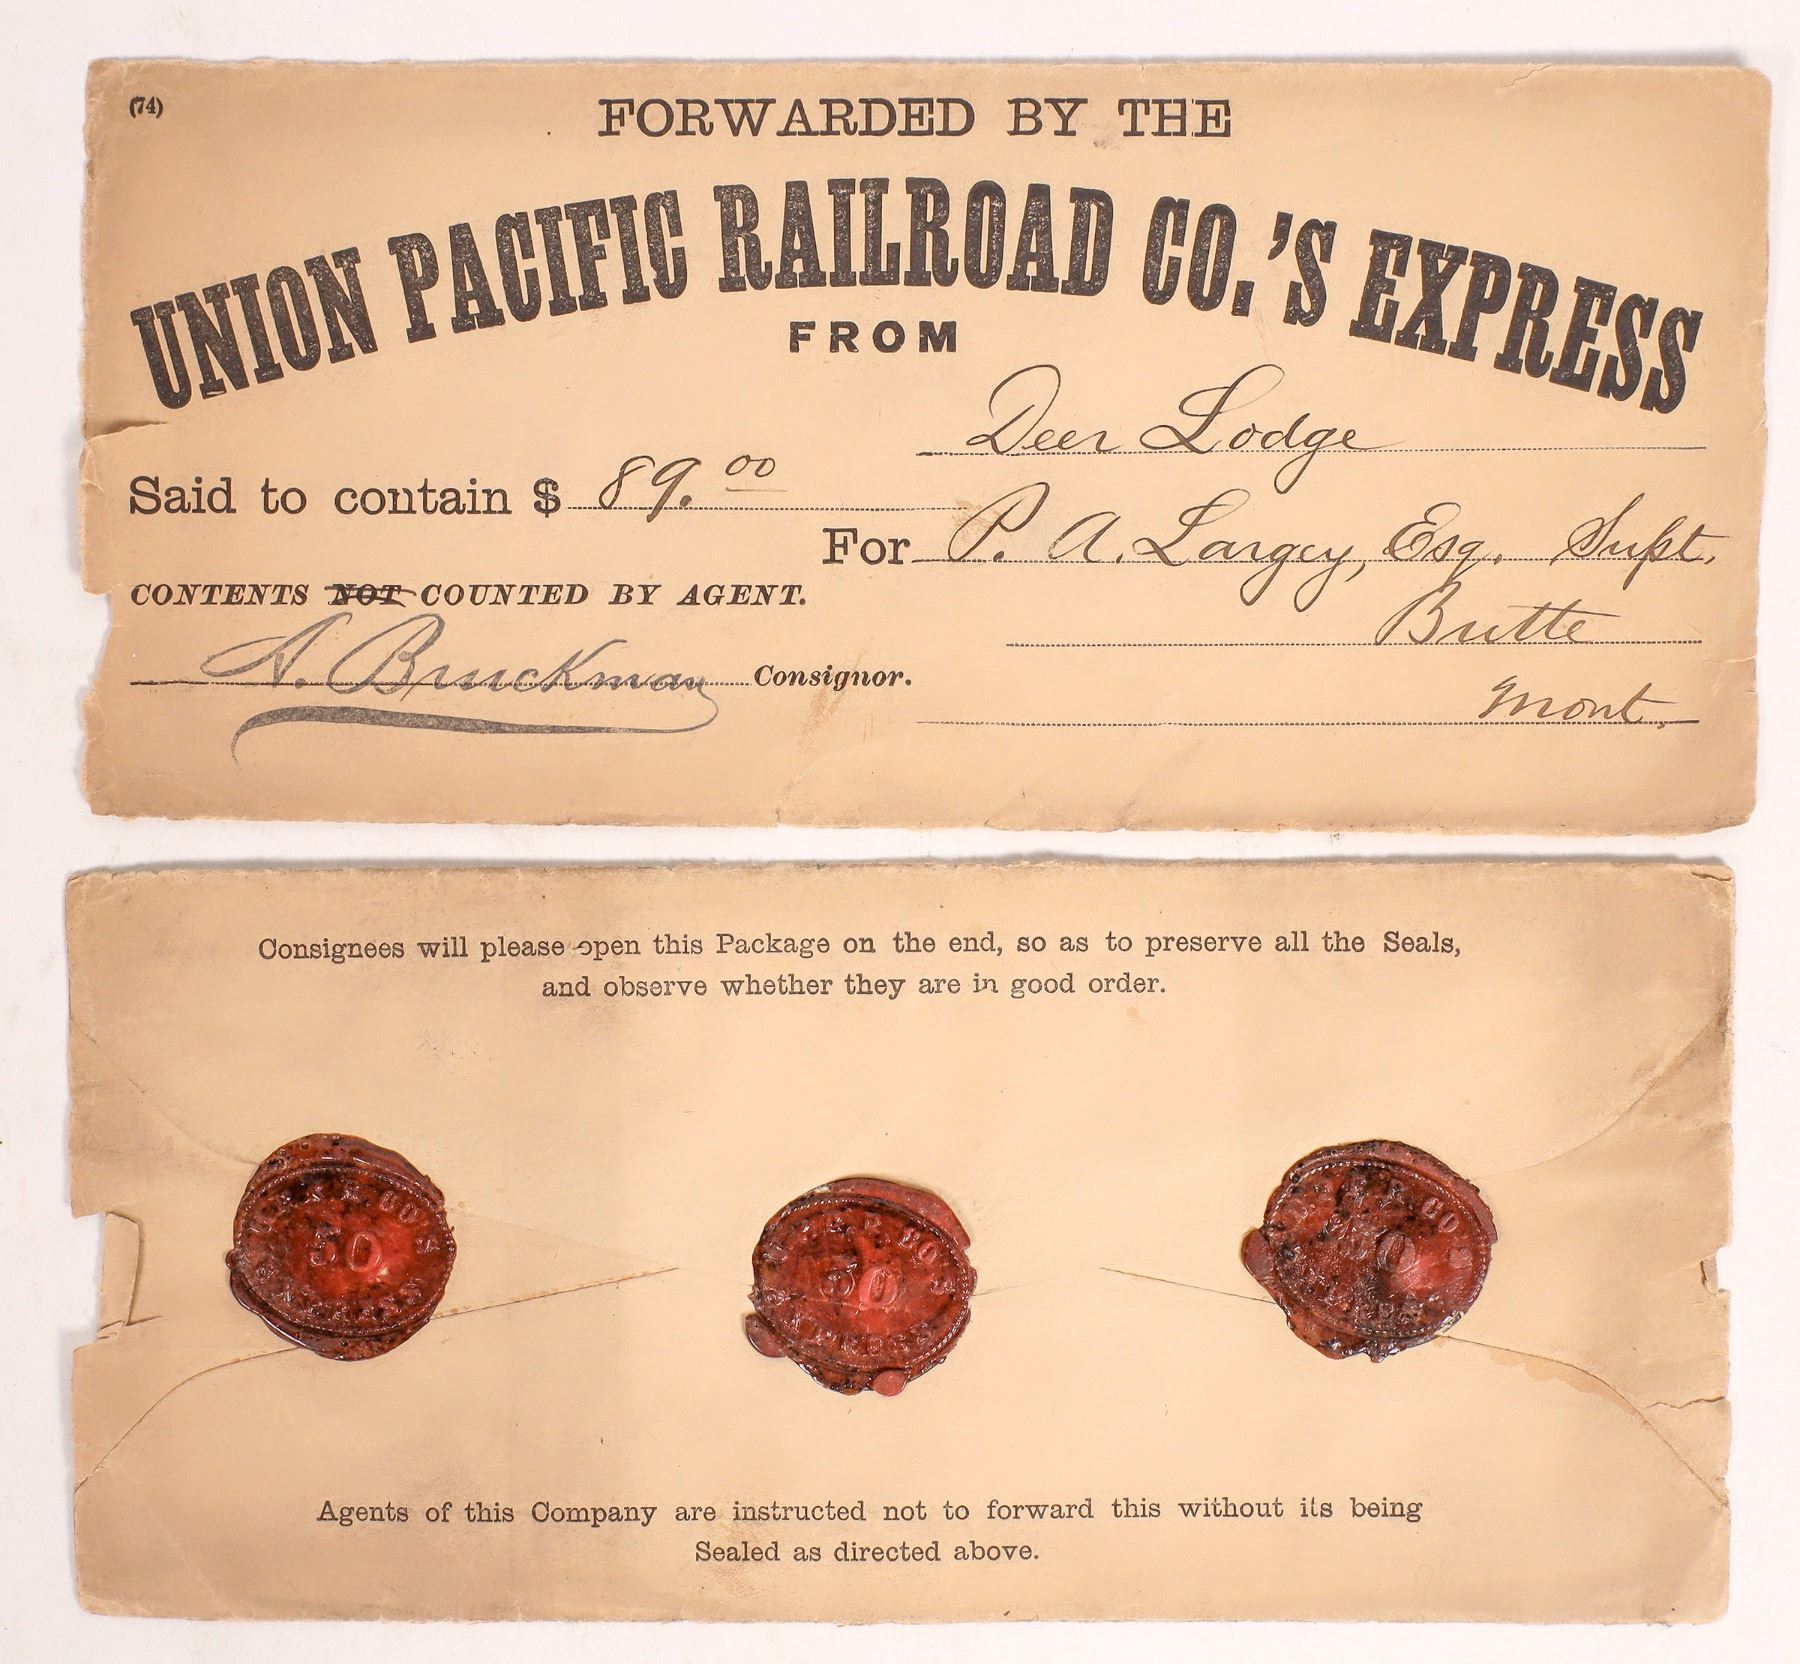 (74)
FORWARDED BY THE
UNION PACIFIC RAILROAD CO.'S EXPRESS
FROM
Deer Lodge
Said to contain $ 89.00
For P. A. Largey, Esq. Supt.
CONTENTS NOT COUNTED BY AGENT.
Butte
A. Bruckman Consignor.
Mont.
Consignees will please open this Package on the end, so as to preserve all the Seals,
and observe whether they are in good order.
R. R. CO'S
30
EXPRESS
R. CO'S
0
EXPRESS
CO'S
0
Agents of this Company are instructed not to forward this without its being
Sealed as directed above.